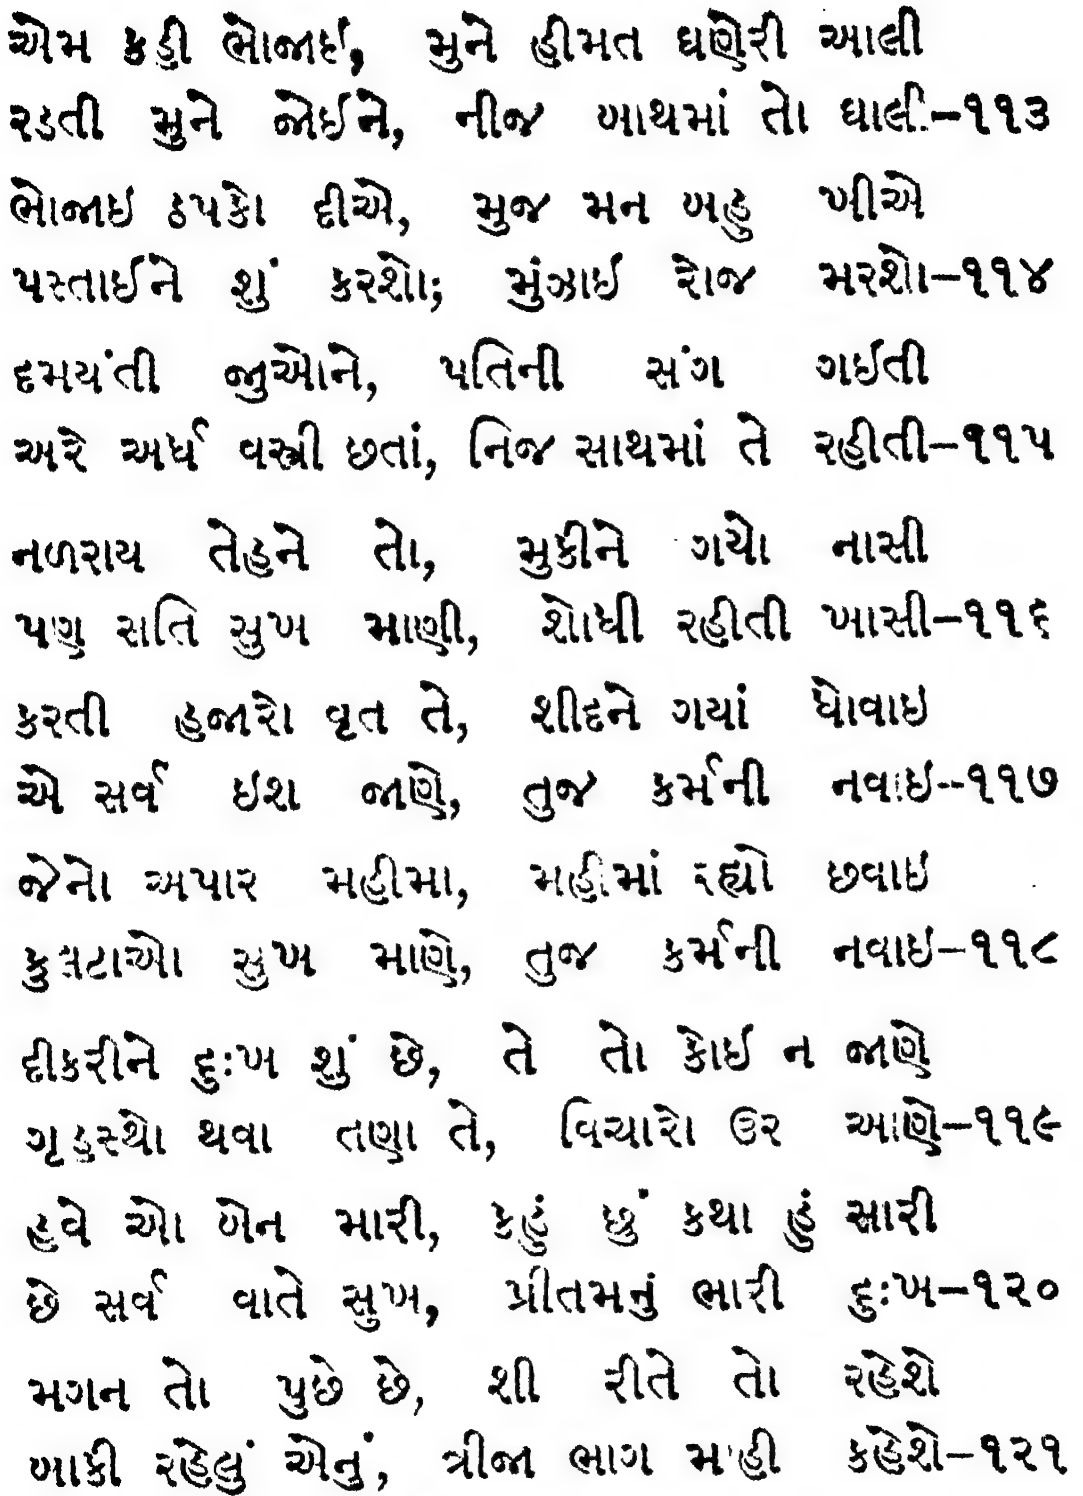 એમ કહી ભોજાઈ, મુને હીમત ઘણેરી આલી
રડતી મુને જોઈને, નીજ બાથમાં તો ઘાલી–૧૧૩
ભોજાઇ ઠપકો દીએ, મુજ મન બહુ બીએ
પસ્તાઈને શું કરશો; મુંઝાઈ રોજ મરશો–૧૧૪
દમયંતી જુઓને, પતિની સંગ ગઈતી
અરે અર્ધ વસ્ત્રી છતાં, નિજ સાથમાં તે રહીતી–૧૧૫
નળરાય તેહને તો, મુકીને ગયો નાસી
પણ સતિ સુખ માણી, શોધી રહીતી ખાસી–૧૧૬
કરતી હજારો વૃત તે, શીદને ગયાં ધોવાઇ
એ સર્વ ઇશ જાણે, તુજ કર્મની નવાઇ–૧૧૭
જેનો અપાર મહીમા, મહીમાં રહ્યો છવાઇ
કુલટાઓ સુખ માણે, તુજ કર્મની નવાઇ–૧૧૮
દીકરીને દુઃખ શું છે, તે તો કોઈ ન જાણે
ગૃહસ્થો થવા તણા તે, વિચારો ઉર આણે–૧૧૯
હવે ઓ બેન મારી, કહું છું કથા હું સારી
છે સર્વ વાતે સુખ, પ્રીતમનું ભારી દુઃખ–૧૨૦
મગન તો પુછે છે, શી રીતે તો રહેશે
બાકી રહેલું એનું, ત્રીજા ભાગ માંહી કહેશે–૧૨૧